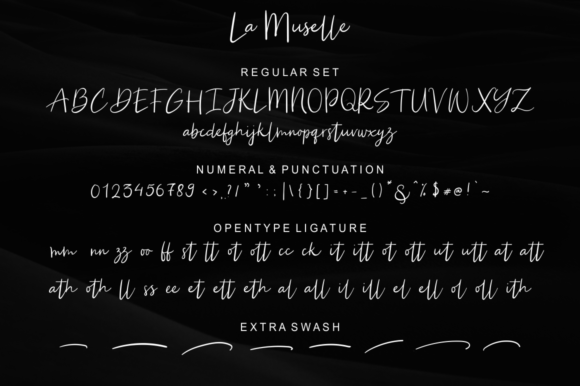 La Muselle
REGULAR SET
ABCDEFGHIJKLMNOPQRSTUVWXYZ
abcdefghijklmnopqrstuvwxyz
NUMERAL & PUNCTUATION
0123456789 <>.,?/"':;|\{}[]=+-_()*&^%$#@!`~
OPENTYPE LIGATURE
mm nn zz oo ff st tt ot ott cc ck it itt ot ott ut utt at att
ath oth ll ss ee et ett eth al all il ill el ell ol oll ith
EXTRA SWASH